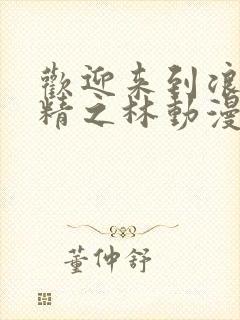 歡迎来到浪
精之林動漫
董仲舒